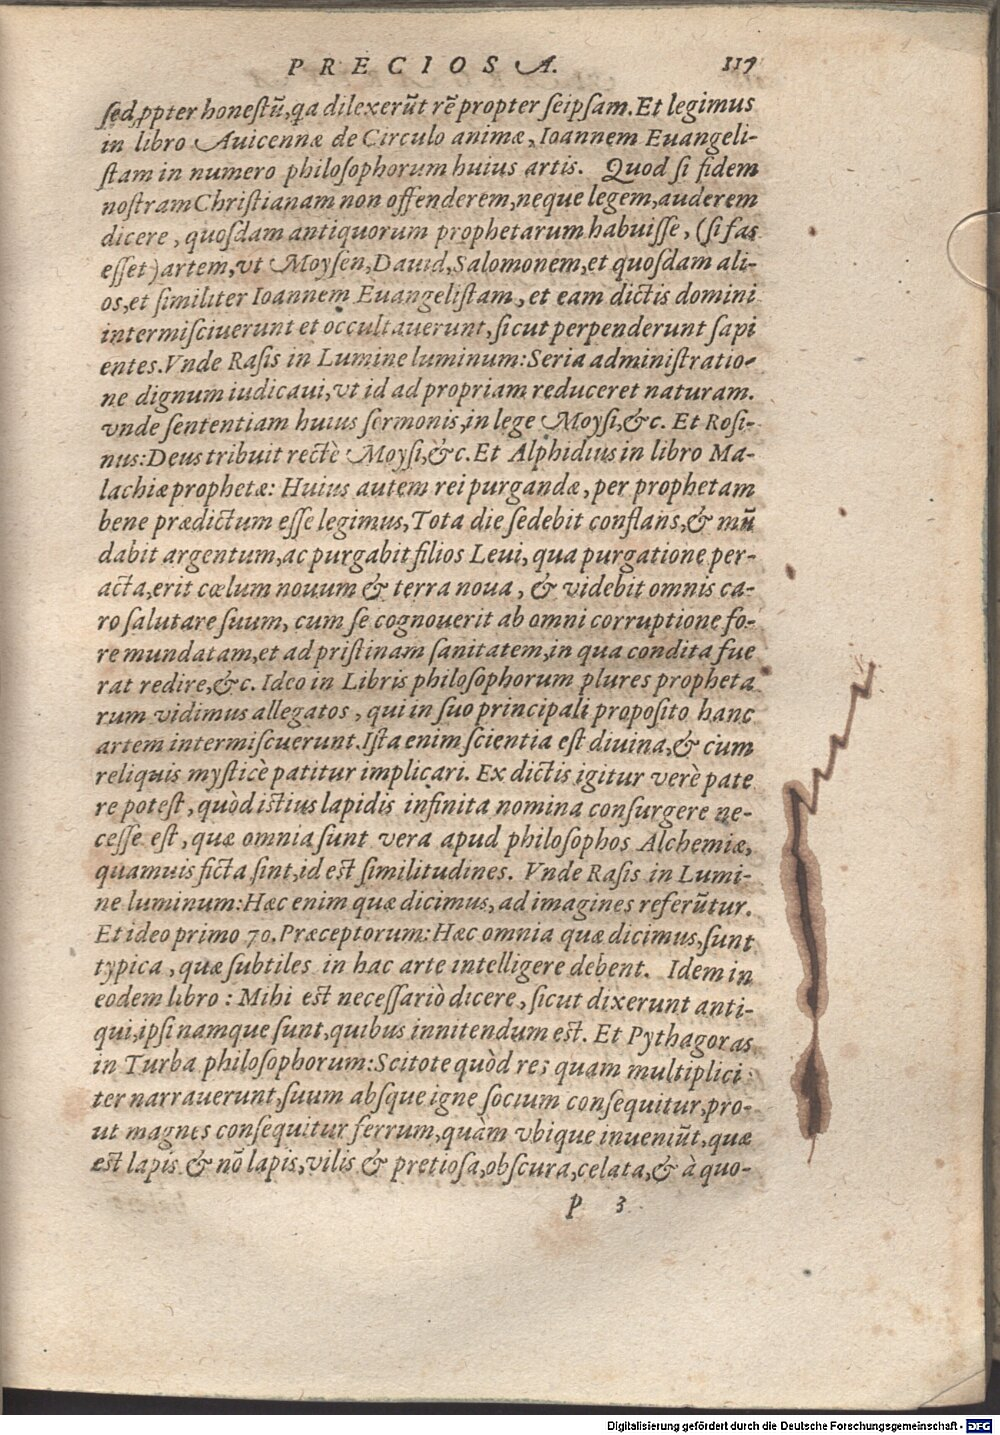 PRECIOSA. 117
ſed ꝓpter honeſtũ, qa dilexerũt rẽ propter ſeipſam. Et legimus
in libro Auicennæ de Circulo animæ, Ioannem Euangeli-
ſtam in numero philoſophorum huius artis. Quod ſi fidem
noſtram Chriſtianam non offenderem, neque legem, auderem
dicere, quoſdam antiquorum prophetarum habuiſſe, (ſi fas
eſſet) artem, vt Moyſen, Dauid, Salomonem, et quoſdam ali-
os, et ſimiliter Ioannem Euangeliſtam, et eam dictis domini
intermiſciuerunt et occultauerunt, ſicut perpenderunt ſapi
entes. Vnde Raſis in Lumine luminum: Seria adminiſtratio-
ne dignum iudicaui, vt id ad propriam reduceret naturam.
vnde ſententiam huius ſermonis, in lege Moyſi, &c. Et Roſi-
nus: Deus tribuit rectè Moyſi, &c. Et Alphidius in libro Ma-
lachiæ prophetæ: Huius autem rei purgandæ, per prophetam
bene prædictum eſſe legimus, Tota die ſedebit conflans, & mũ
dabit argentum, ac purgabit filios Leui, qua purgatione per-
acta, erit cœlum nouum & terra noua, & videbit omnis ca-
ro ſalutare ſuum, cum ſe cognouerit ab omni corruptione fo-
re mundatam, et ad priſtinam ſanitatem, in qua condita fue
rat redire, &c. Ideo in Libris philoſophorum plures propheta
rum vidimus allegatos, qui in ſuo principali propoſito hanc
artem intermiſcuerunt. Iſta enim ſcientia eſt diuina, & cum
reliquis myſticè patitur implicari. Ex dictis igitur verè pate
re poteſt, quòd iſtius lapidis infinita nomina conſurgere ne-
ceſſe eſt, quæ omnia ſunt vera apud philoſophos Alchemiæ,
quamuis ficta ſint, id eſt ſimilitudines. Vnde Raſis in Lumi-
ne luminum: Hæc enim quæ dicimus, ad imagines referũtur.
Et ideo primo 70. Præceptorum: Hæc omnia quæ dicimus, ſunt
typica, quæ ſubtiles in hac arte intelligere debent. Idem in
eodem libro: Mihi eſt neceſſariò dicere, ſicut dixerunt anti-
qui, ipſi namque ſunt, quibus innitendum eſt. Et Pythagoras
in Turba philoſophorum: Scitote quòd res quam multiplici
ter narrauerunt, ſuum abſque igne ſocium conſequitur, pro-
ut magnes conſequitur ferrum, quàm vbique inueniũt, quæ
eſt lapis & nõ lapis, vilis & pretioſa, obſcura, celata, & à quo-
p 3
Digitalisierung gefördert durch die Deutsche Forschungsgemeinschaft - DFG